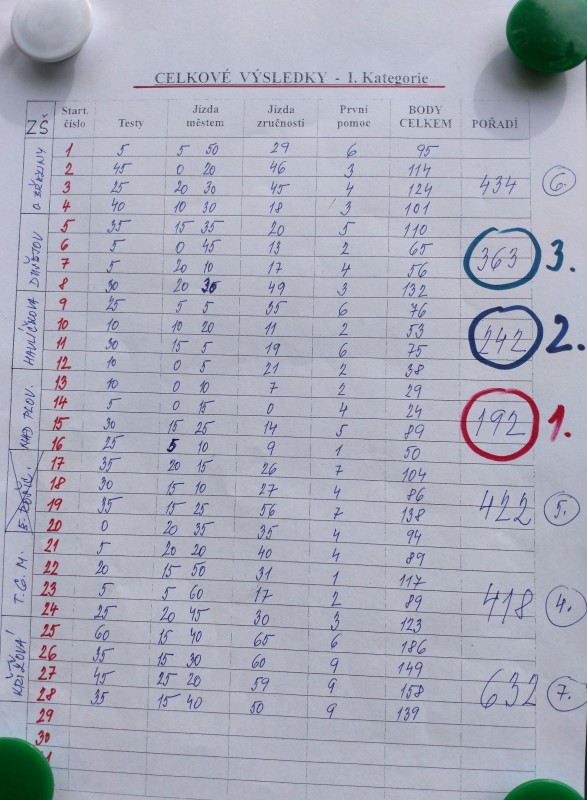 CELKOVÉ VÝSLEDKY - I. Kategorie
ZŠ Start. číslo Testy Jízda městem Jízda zručnosti První pomoc BODY CELKEM POŘADÍ
O. BŘEZINY
1 5 5 50 29 6 95
2 45 0 20 46 3 114
3 25 20 30 45 4 124 434 6.
4 40 10 30 18 3 101
5 35 15 35 20 5 110
6 5 0 45 13 2 65
7 5 20 10 17 4 56 363 3.
8 30 20 30 49 3 132
HAVLÍČKOVA
9 25 5 5 35 6 76
10 10 10 20 11 2 53
11 30 15 5 19 6 75 242 2.
12 10 0 5 21 2 38
NAD PLOV.
13 10 0 10 7 2 29
14 5 0 15 0 4 24
15 30 15 25 14 5 89 192 1.
16 25 5 10 9 1 50
17 35 20 15 26 7 104
18 30 15 10 27 4 86
19 35 15 25 56 7 138 422 5.
20 0 20 35 35 4 94
T. G. M.
21 5 20 20 40 4 89
22 20 15 50 31 1 117
23 5 5 60 17 2 89 418 4.
24 25 20 45 30 3 123
25 60 15 40 65 6 186
26 35 15 30 60 9 149
27 45 25 20 59 9 158 632 7.
28 35 15 40 50 9 139
29
30